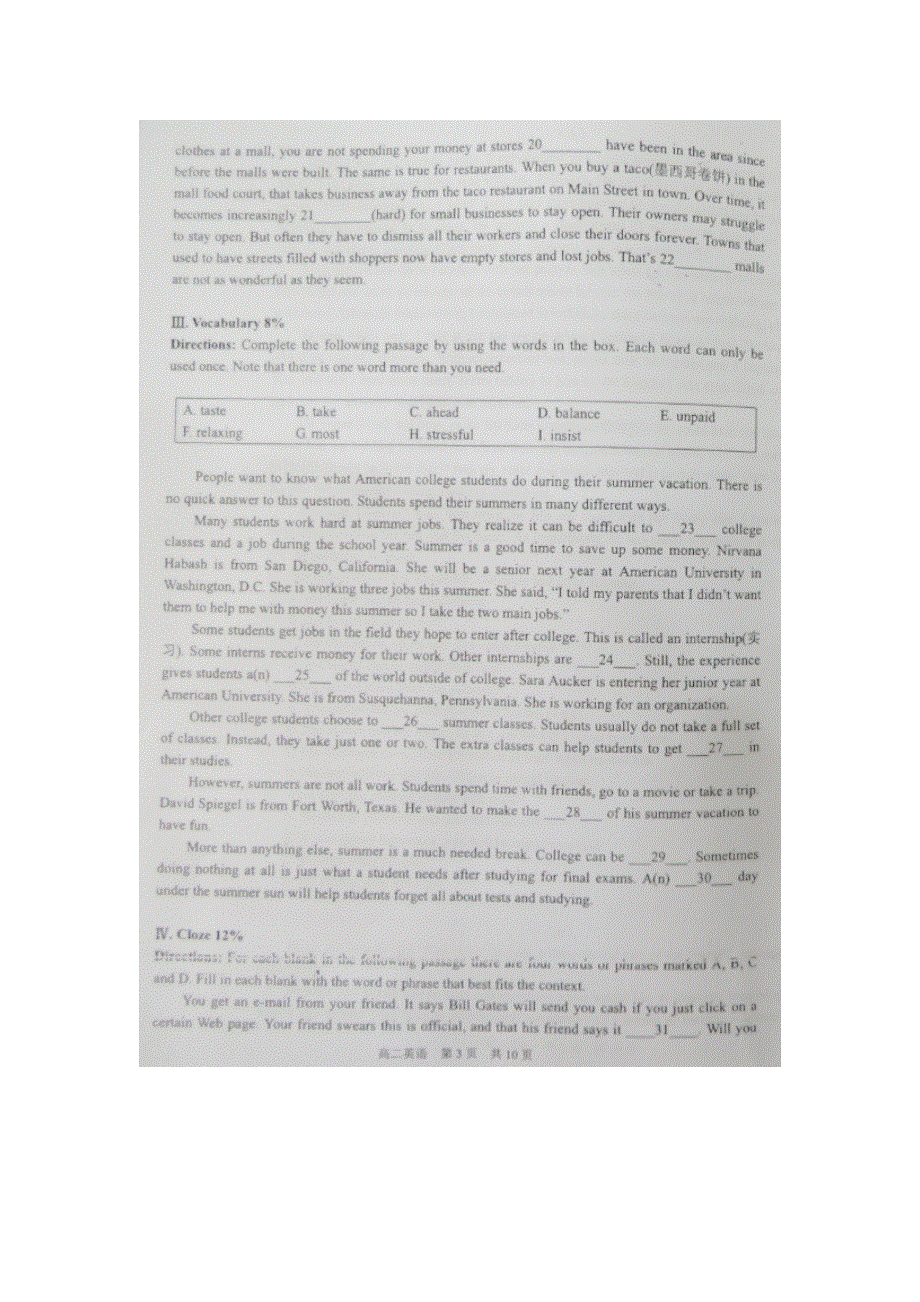 clothes at a mall, you are not spending your money at stores 20________ have been in the area since
before the malls were built. The same is true for restaurants. When you buy a taco(墨西哥卷饼) in the
mall food court, that takes business away from the taco restaurant on Main Street in town. Over time, it
becomes increasingly 21________(hard) for small businesses to stay open. Their owners may struggle
to stay open. But often they have to dismiss all their workers and close their doors forever. Towns that
used to have streets filled with shoppers now have empty stores and lost jobs. That's 22________ malls
are not as wonderful as they seem.
Ⅲ. Vocabulary 8%
Directions: Complete the following passage by using the words in the box. Each word can only be
used once. Note that there is one word more than you need.
A. taste B. take C. ahead D. balance E. unpaid
F. relaxing G. most H. stressful I. insist
People want to know what American college students do during their summer vacation. There is
no quick answer to this question. Students spend their summers in many different ways.
Many students work hard at summer jobs. They realize it can be difficult to ___23___ college
classes and a job during the school year. Summer is a good time to save up some money. Nirvana
Habash is from San Diego, California. She will be a senior next year at American University in
Washington, D.C. She is working three jobs this summer. She said, "I told my parents that I didn't want
them to help me with money this summer so I take the two main jobs."
Some students get jobs in the field they hope to enter after college. This is called an internship(实
习). Some interns receive money for their work. Other internships are ___24___. Still, the experience
gives students a(n) ___25___ of the world outside of college. Sara Aucker is entering her junior year at
American University. She is from Susquehanna, Pennsylvania. She is working for an organization.
Other college students choose to ___26___ summer classes. Students usually do not take a full set
of classes. Instead, they take just one or two. The extra classes can help students to get ___27___ in
their studies.
However, summers are not all work. Students spend time with friends, go to a movie or take a trip.
David Spiegel is from Fort Worth, Texas. He wanted to make the ___28___ of his summer vacation to
have fun.
More than anything else, summer is a much needed break. College can be ___29___. Sometimes
doing nothing at all is just what a student needs after studying for final exams. A(n) ___30___ day
under the summer sun will help students forget all about tests and studying.
Ⅳ. Cloze 12%
Directions: For each blank in the following passage there are four words or phrases marked A, B, C
and D. Fill in each blank with the word or phrase that best fits the context.
You get an e-mail from your friend. It says Bill Gates will send you cash if you just click on a
certain Web page. Your friend swears this is official, and that his friend says it ____31____. Will you
高二英语 第 3 页 共 10 页